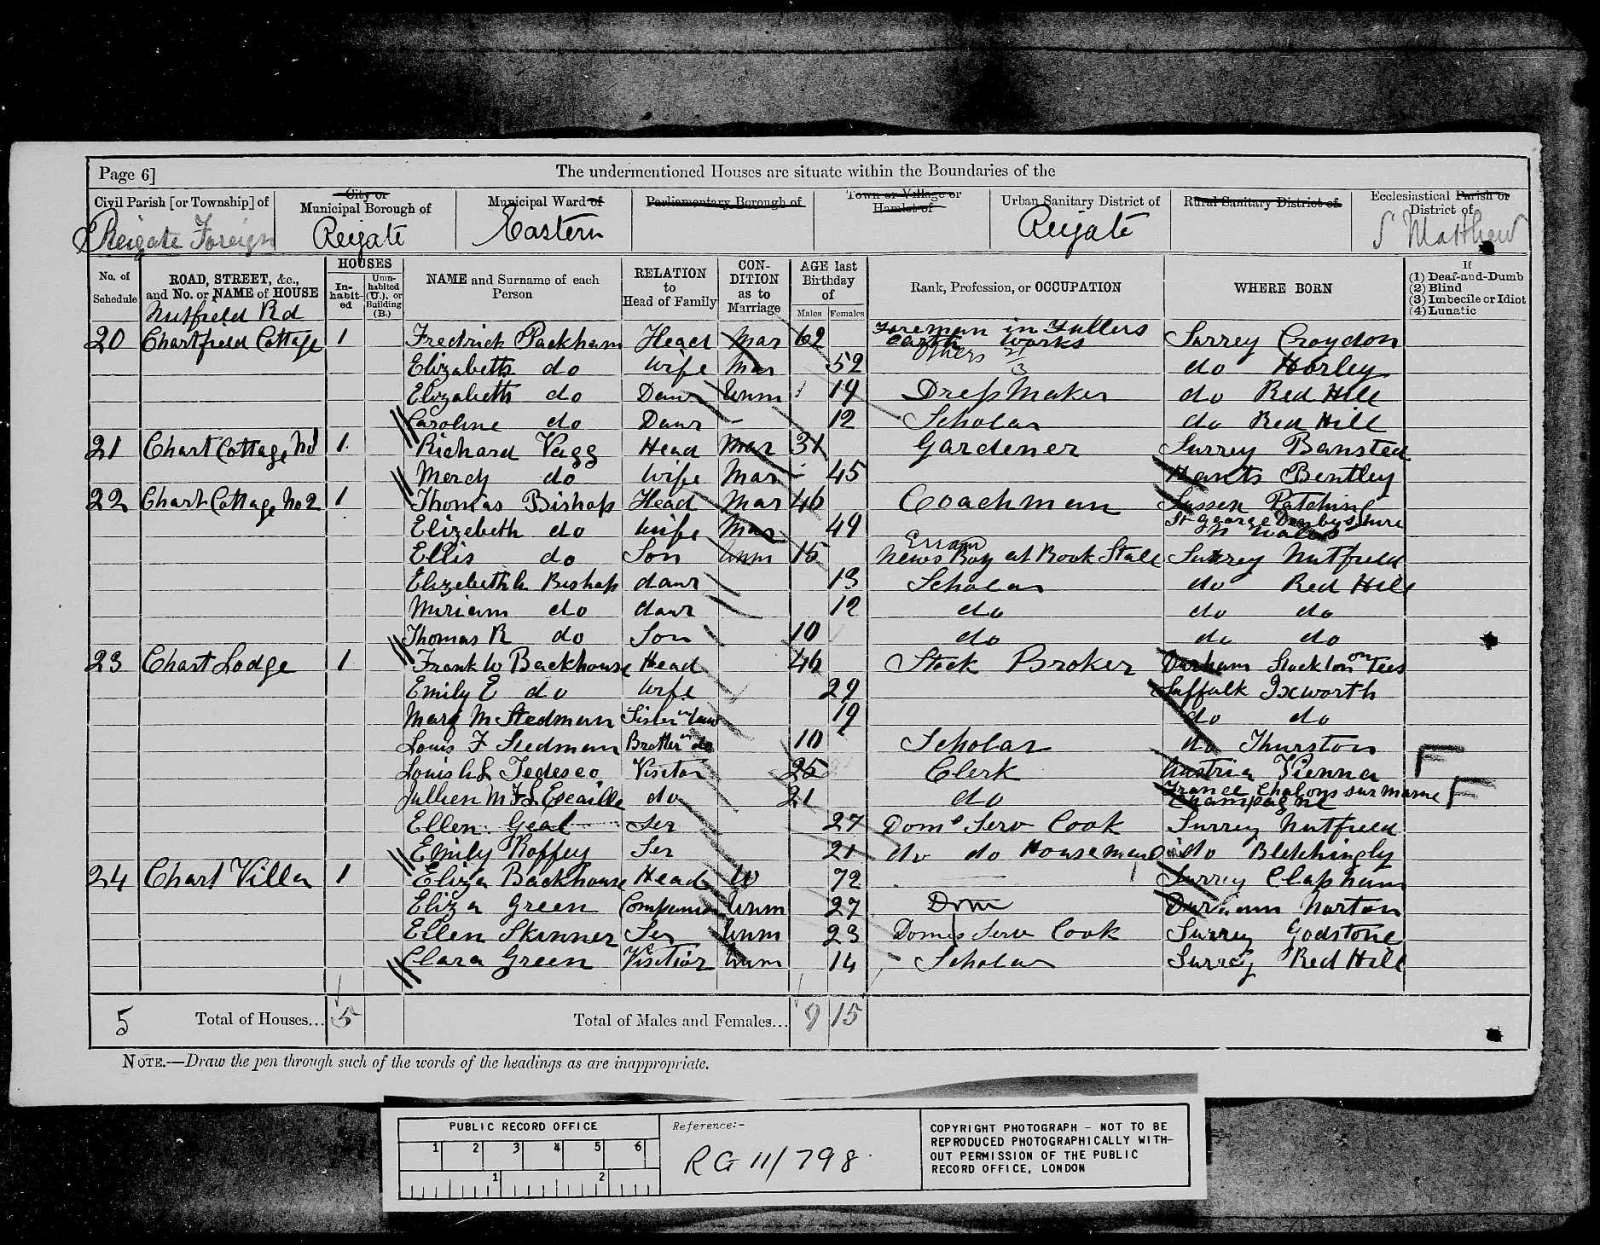 Page 6] The undermentioned Houses are situate within the Boundaries of the
Civil Parish [or Township] of City or Municipal Borough of Municipal Ward of Parliamentary Borough of Town or Village or Hamlet of Urban Sanitary District of Rural Sanitary District of Ecclesiastical Parish or District of
Reigate Foreign Reigate Eastern Reigate S Matthew
No. of Schedule ROAD, STREET, &c., and No. or NAME of HOUSE HOUSES Inhabited Uninhabited (U.), or Building (B.) NAME and Surname of each Person RELATION to Head of Family CONDITION as to Marriage AGE last Birthday of Males Females Rank, Profession, or OCCUPATION WHERE BORN If (1) Deaf-and-Dumb (2) Blind (3) Imbecile or Idiot (4) Lunatic
Nutfield Rd
20 Chartfield Cottage 1 Fredrick Packham Head Mar 62 Foreman in Fullers Earth Works Surrey Croydon
Others
Elizabeth do Wife Mar 52 do Horley
Elizabeth do Daur Unm 19 Dress Maker do Red Hill
Caroline do Daur - 12 Scholar do Red Hill
21 Chart Cottage No1 1 Richard Vagg Head Mar 31 Gardener Surrey Banstead
Mercy do Wife Mar 45 Hants Bentley
22 Chart Cottage No 2 1 Thomas Bishop Head Mar 46 Coachman Sussex Patching
Elizebeth do Wife Mar 49 St George Denbyshire N Wales
Ellis do Son Unm 15 Errand News Boy at Book Stall Surrey Nutfield
Elizebeth A Bishop daur 13 Scholar do Red Hill
Miriam do daur 12 do do do
Thomas R do Son 10 do do do
23 Chart Lodge 1 Frank W Backhouse Head 46 Stock Broker Durham Stockton on Tees
Emily E do Wife 29 Suffolk Ixworth
Mary M Stedman Sister in law 19 do do
Louis F Stedman Brother in do 10 Scholar do Thurston
Louis A L Tedesco Visitor 25 Clerk Austria Vienna F
Jullien M F L Escaille do 21 do France Chalons sur Marne Champagne F
Ellen Geal Ser 27 Domc Serv Cook Surrey Nutfield
Emily Roffey Ser 21 do do Housemaid do Bletchingly
24 Chart Villa 1 Eliza Backhouse Head W 72 Surrey Clapham
Eliza Green Companion Unm 27 Dom Durham Norton
Ellen Skinner Ser Unm 23 Domes Serv Cook Surrey Godstone
Clara Green Visitior Unm 14 Scholar Surrey Red Hill
5 Total of Houses... 5 Total of Males and Females... 9 15
NOTE.—Draw the pen through such of the words of the headings as are inappropriate.
PUBLIC RECORD OFFICE
1 2 3 4 5 6
1 2
Reference:-
RG 11/798
COPYRIGHT PHOTOGRAPH - NOT TO BE
REPRODUCED PHOTOGRAPHICALLY WITH-
OUT PERMISSION OF THE PUBLIC
RECORD OFFICE, LONDON